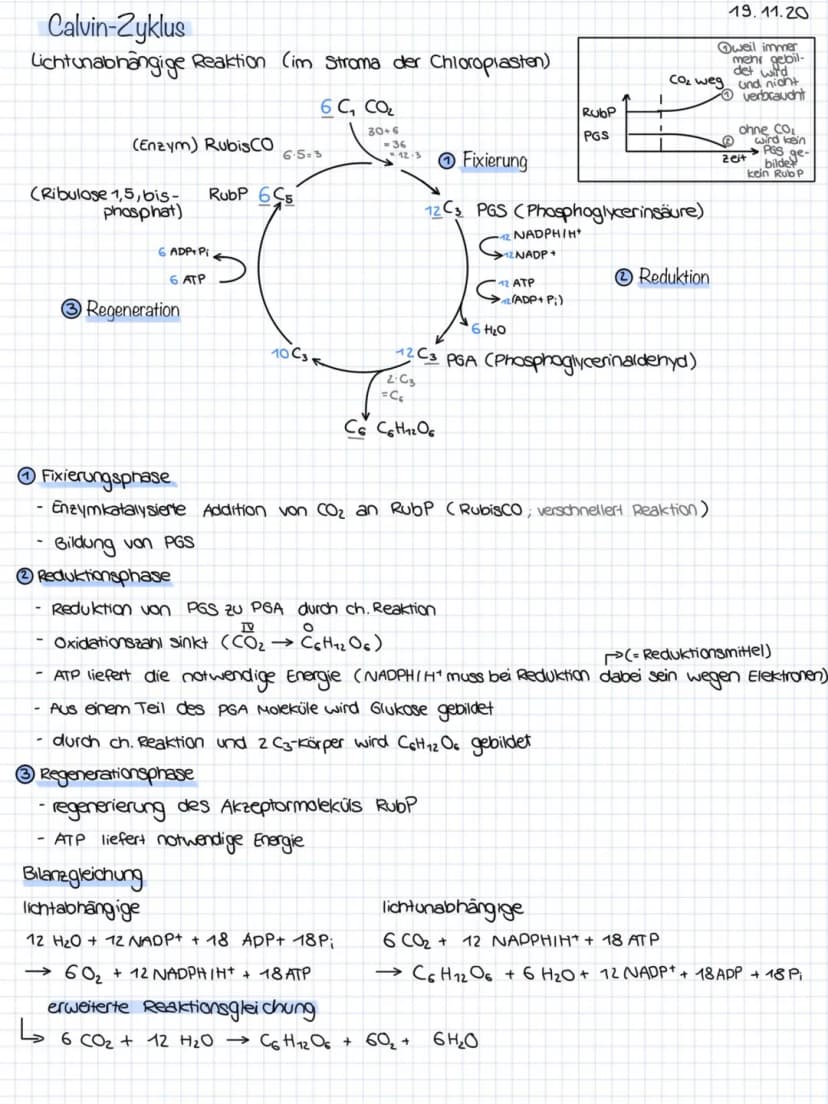 19.11.20
Calvin-Zyklus
Lichtunabhängige Reaktion (im Stroma der Chloroplasten)
CO₂ weg
① weil immer
mehr gebil-
det wird
und nicht
verbraucht
①
RubP
PGS
② ohne CO₂
wird kein
PGS ge-
bildet
kein RubP
zeit
6 C₁ CO₂
30+6
=36
=12·3
(Enzym) RubisCO
6·5=3
① Fixierung
(Ribulose 1,5, bis-
phosphat)
RubP 6C₅
12C₃ PGS (Phosphoglycerinsäure)
12 NADPH/H⁺
12 NADP+
6 ADP+Pi
6 ATP
12 ATP
12(ADP+Pi)
② Reduktion
③ Regeneration
6 H₂O
10C₃
12C₃ PGA (Phosphoglycerinaldehyd)
2·C₃
=C₆
C₆ C₆H₁₂O₆
① Fixierungsphase
- Enzymkatalysierte Addition von CO₂ an RubP (RubisCO; verschnellert Reaktion)
- Bildung von PGS
② Reduktionsphase
- Reduktion von PGS zu PGA durch ch. Reaktion
IV O
- Oxidationszahl sinkt (CO₂ → C₆H₁₂O₆)
↱(= Reduktionsmittel)
- ATP liefert die notwendige Energie (NADPH/H⁺ muss bei Reduktion dabei sein wegen Elektronen)
- Aus einem Teil des PGA Moleküle wird Glukose gebildet
- durch ch. Reaktion und 2 C₃-Körper wird C₆H₁₂O₆ gebildet
③ Regenerationsphase
- regenerierung des Akzeptormoleküls RubP
- ATP liefert notwendige Energie
Bilanzgleichung
lichtabhängige
12 H₂O + 12 NADP⁺ + 18 ADP + 18Pi
→ 6O₂ + 12 NADPH/H⁺ + 18ATP
lichtunabhängige
6 CO₂ + 12 NADPH/H⁺ + 18 ATP
→ C₆H₁₂O₆ + 6 H₂O + 12 NADP⁺ + 18ADP + 18 Pi
erweiterte Reaktionsgleichung
↳ 6 CO₂ + 12 H₂O → C₆H₁₂O₆ + 6O₂ + 6H₂O